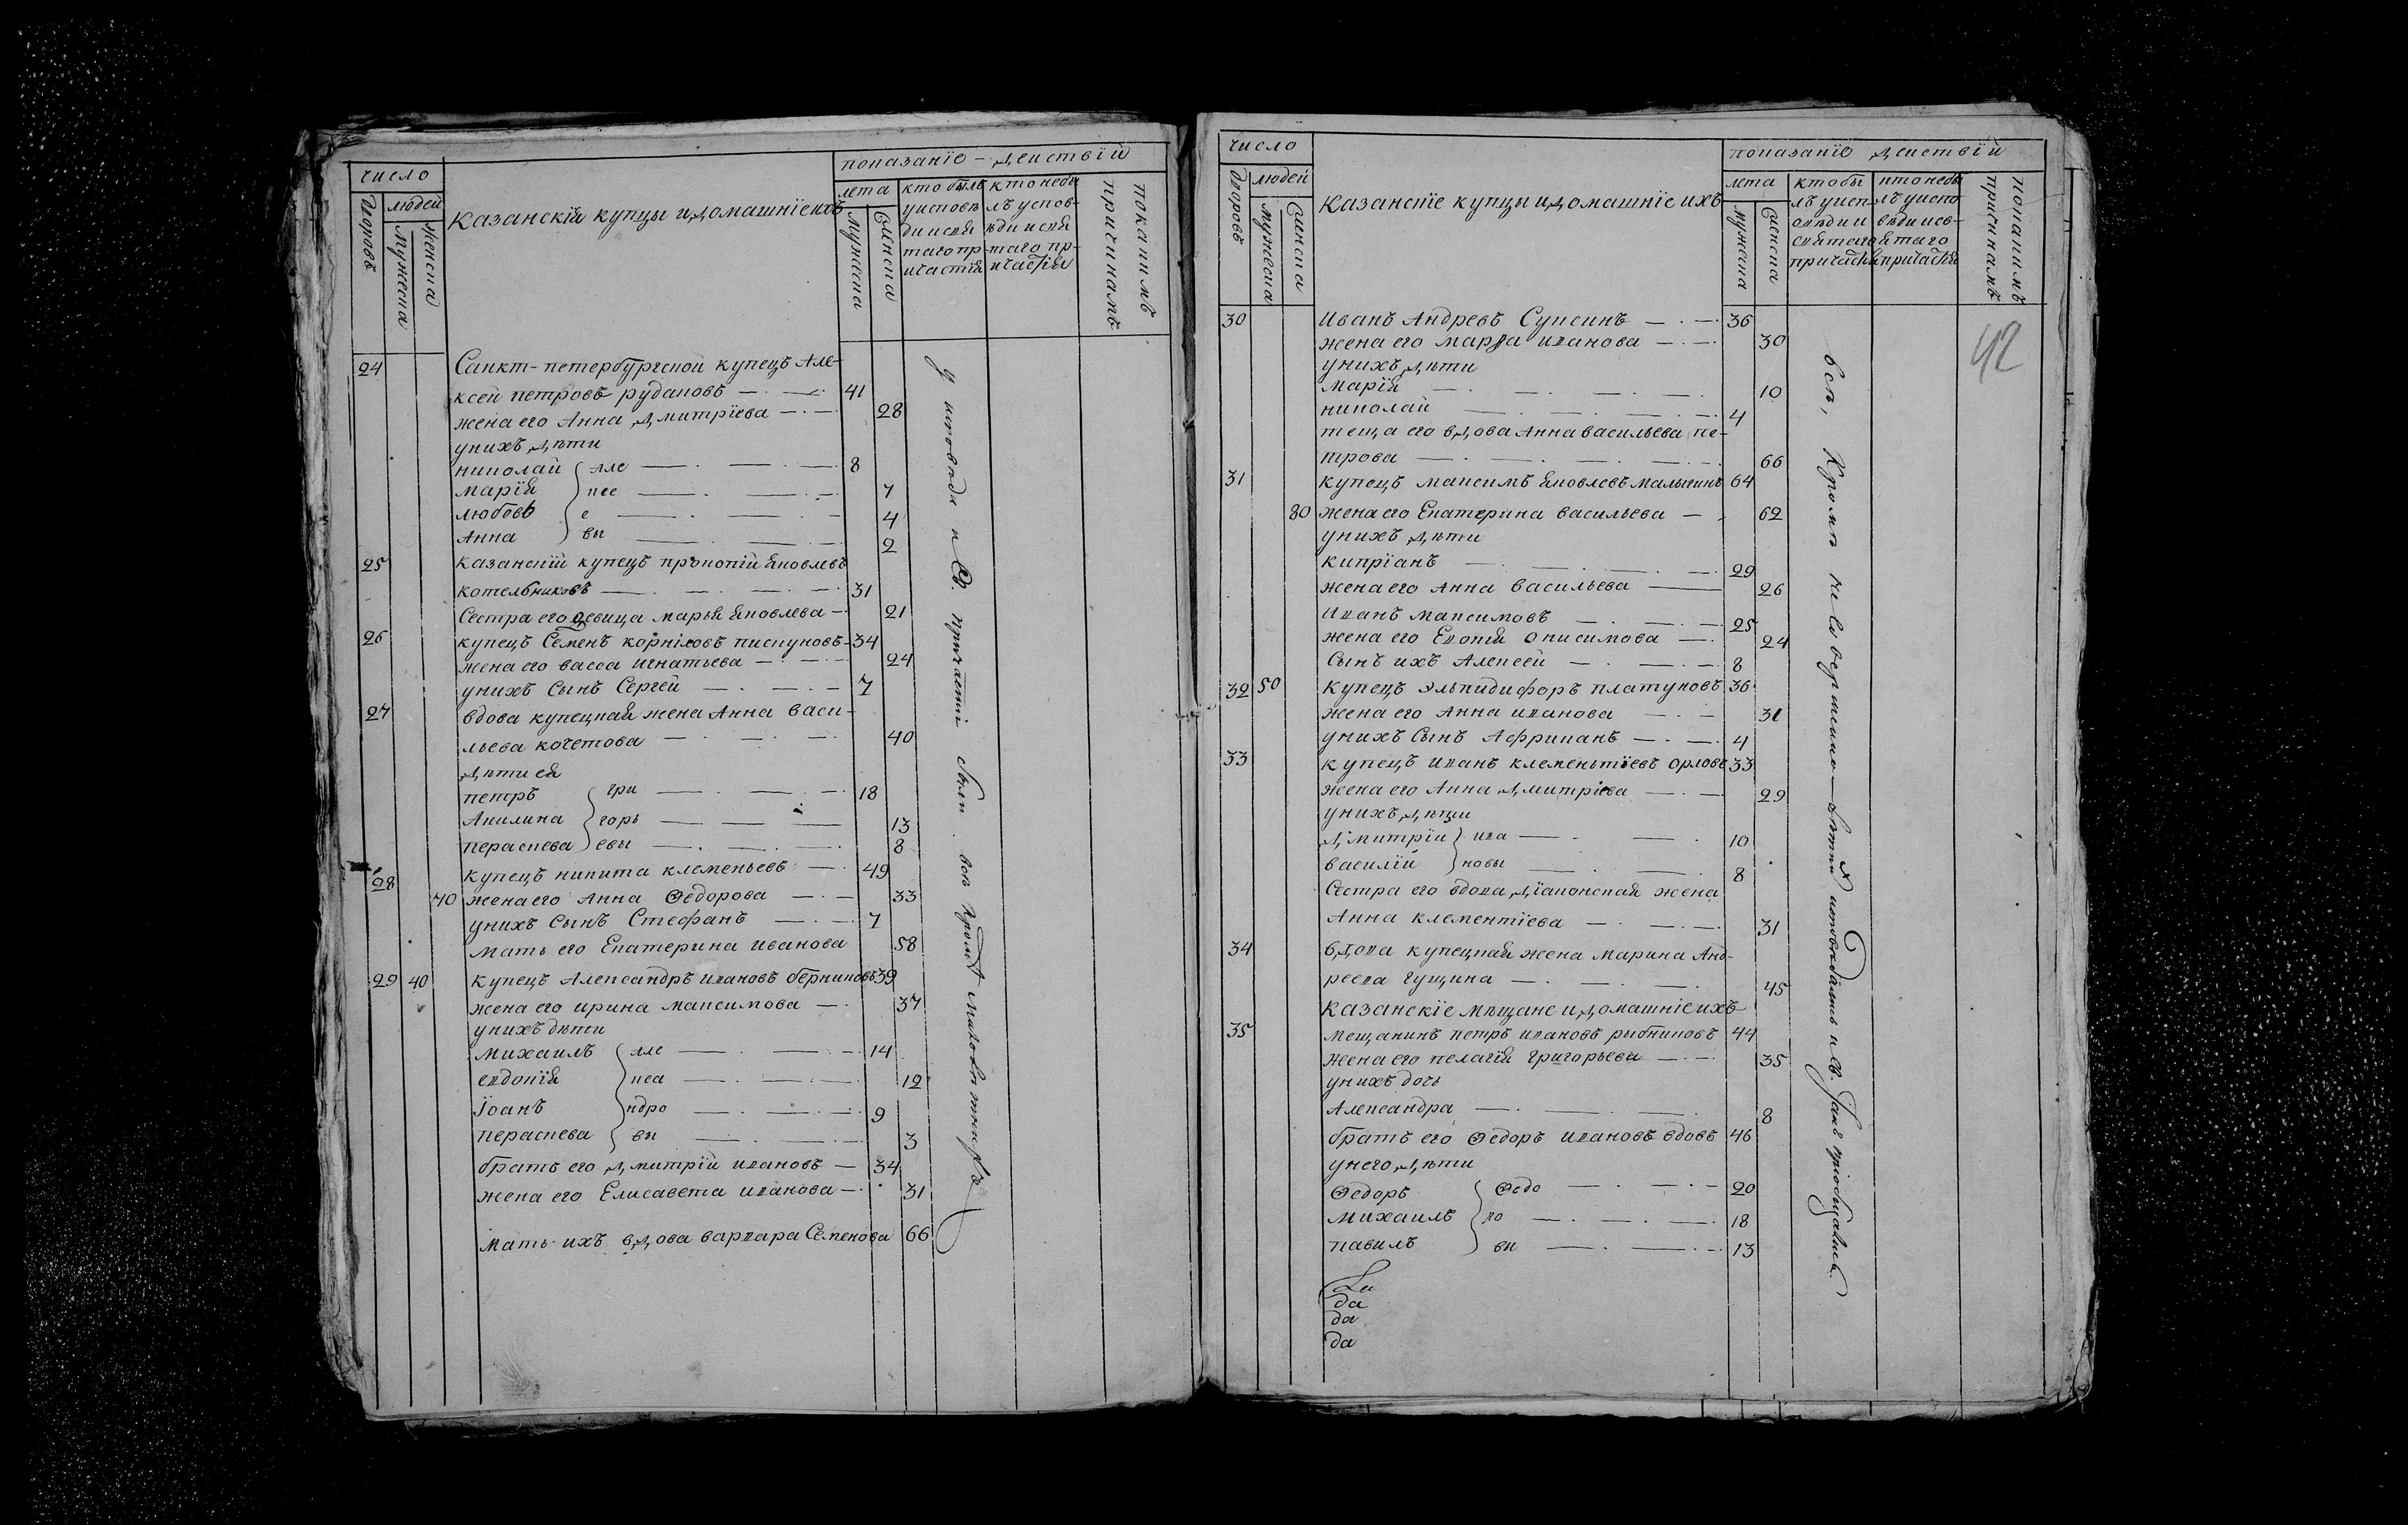 число
показанїе - действїй
дворовъ
людей
мужеска
женска
Казанскїи купцы и домашнїе ихъ
лета
мужеска
женска
кто былъ
у исповѣ
ди и свя
таго пр
ичастїя
кто небы
лъ у спов-
ѣди и свя
таго пр-
ичастїя
покакимъ
причинамъ
24
Санкт-петербургской купецъ Але-
ксей петровъ рудаковъ 41
жена его Анна дмитрїева 28
унихъ дѣти
николай але 8
марїя ксе 7
любовь е 4
Анна вы 2
25 казанскїй купецъ прокопїй яковлевъ
котельниковъ 31
Сестра его девица марья яковлева 21
26 купецъ Семенъ корниловъ пискуновъ 34
жена его васса игнатьева 24
унихъ сынъ Сергей 7
27 вдова купецкая жена Анна васи-
льева кочетова 40
дѣти ея
петръ гри 18
Акилина горь 13
параскева евы 8
28 купецъ никита клеменьевъ 49
40 жена его Анна Ѳедорова 33
унихъ сынъ Стефанъ 7
мать его Екатерина иванова 58
29 40 купецъ Александръ ивановъ берниковъ 39
жена его ирина максимова 37
унихъ дѣти
михаилъ але 14
евдокїя кса 12
Їоанъ ндро 9
параскева вы 3
братъ его дмитрїй ивановъ 34
жена его Елисавета иванова 31
мать ихъ вдова варвара Семенова 66
у исповѣди и Св. причастїи были всѣ кромѣ малолѣтнихъ
число
показанїе действїй
дворовъ
людей
мужеска
женска
казанскїе купцы и домашнїе ихъ
лета
мужеска
женска
кто бы
лъ у исп-
овѣди и
святаго
причастїя
кто небы
лъ у испо
вѣди и св-
ятаго
причастїя
покакимъ
причинамъ
42
30 иванъ Андревъ Сунсинъ 36
жена его марѳа иванова 30
унихъ дѣти
марїя 10
николай 4
теща его вдова Анна васильева пе-
трова 66
31 купецъ максимъ яковлевъ малыгинъ 64
80 жена его Екатерина васильева 62
унихъ дѣти
кипрїанъ 29
жена его Анна васильева 26
иванъ максимовъ 25
жена его Евдокїя онисимова 24
Сынъ ихъ Алексей 8
32 50 купецъ Эльпидифоръ платуновъ 36
жена его Анна иванова 31
унихъ Сынъ Африканъ 4
33 купецъ иванъ клеменьтїевъ орловъ 33
жена его Анна дмитрїева 29
унихъ дѣти
дмитрїй ива 10
василїй новы 8
Сестра его вдова дїаконская жена
Анна клементїева 31
34 вдова купецкая жена марина Анд-
реева гущина 45
казанскїе мѣщане и домашнїе ихъ
35 мещанинъ петръ ивановъ рыбниковъ 44
жена его пелагїя григорьева 35
унихъ дочь
Александра 8
братъ его Ѳедоръ ивановъ вдовъ 46
унего дѣти
Ѳедоръ Ѳедо 20
михаилъ ро 18
павилъ вы 13
да
да
да
всѣ, кромѣ несовершенно-лѣтн. исповѣдались и Св. Таинъ прїобщались.